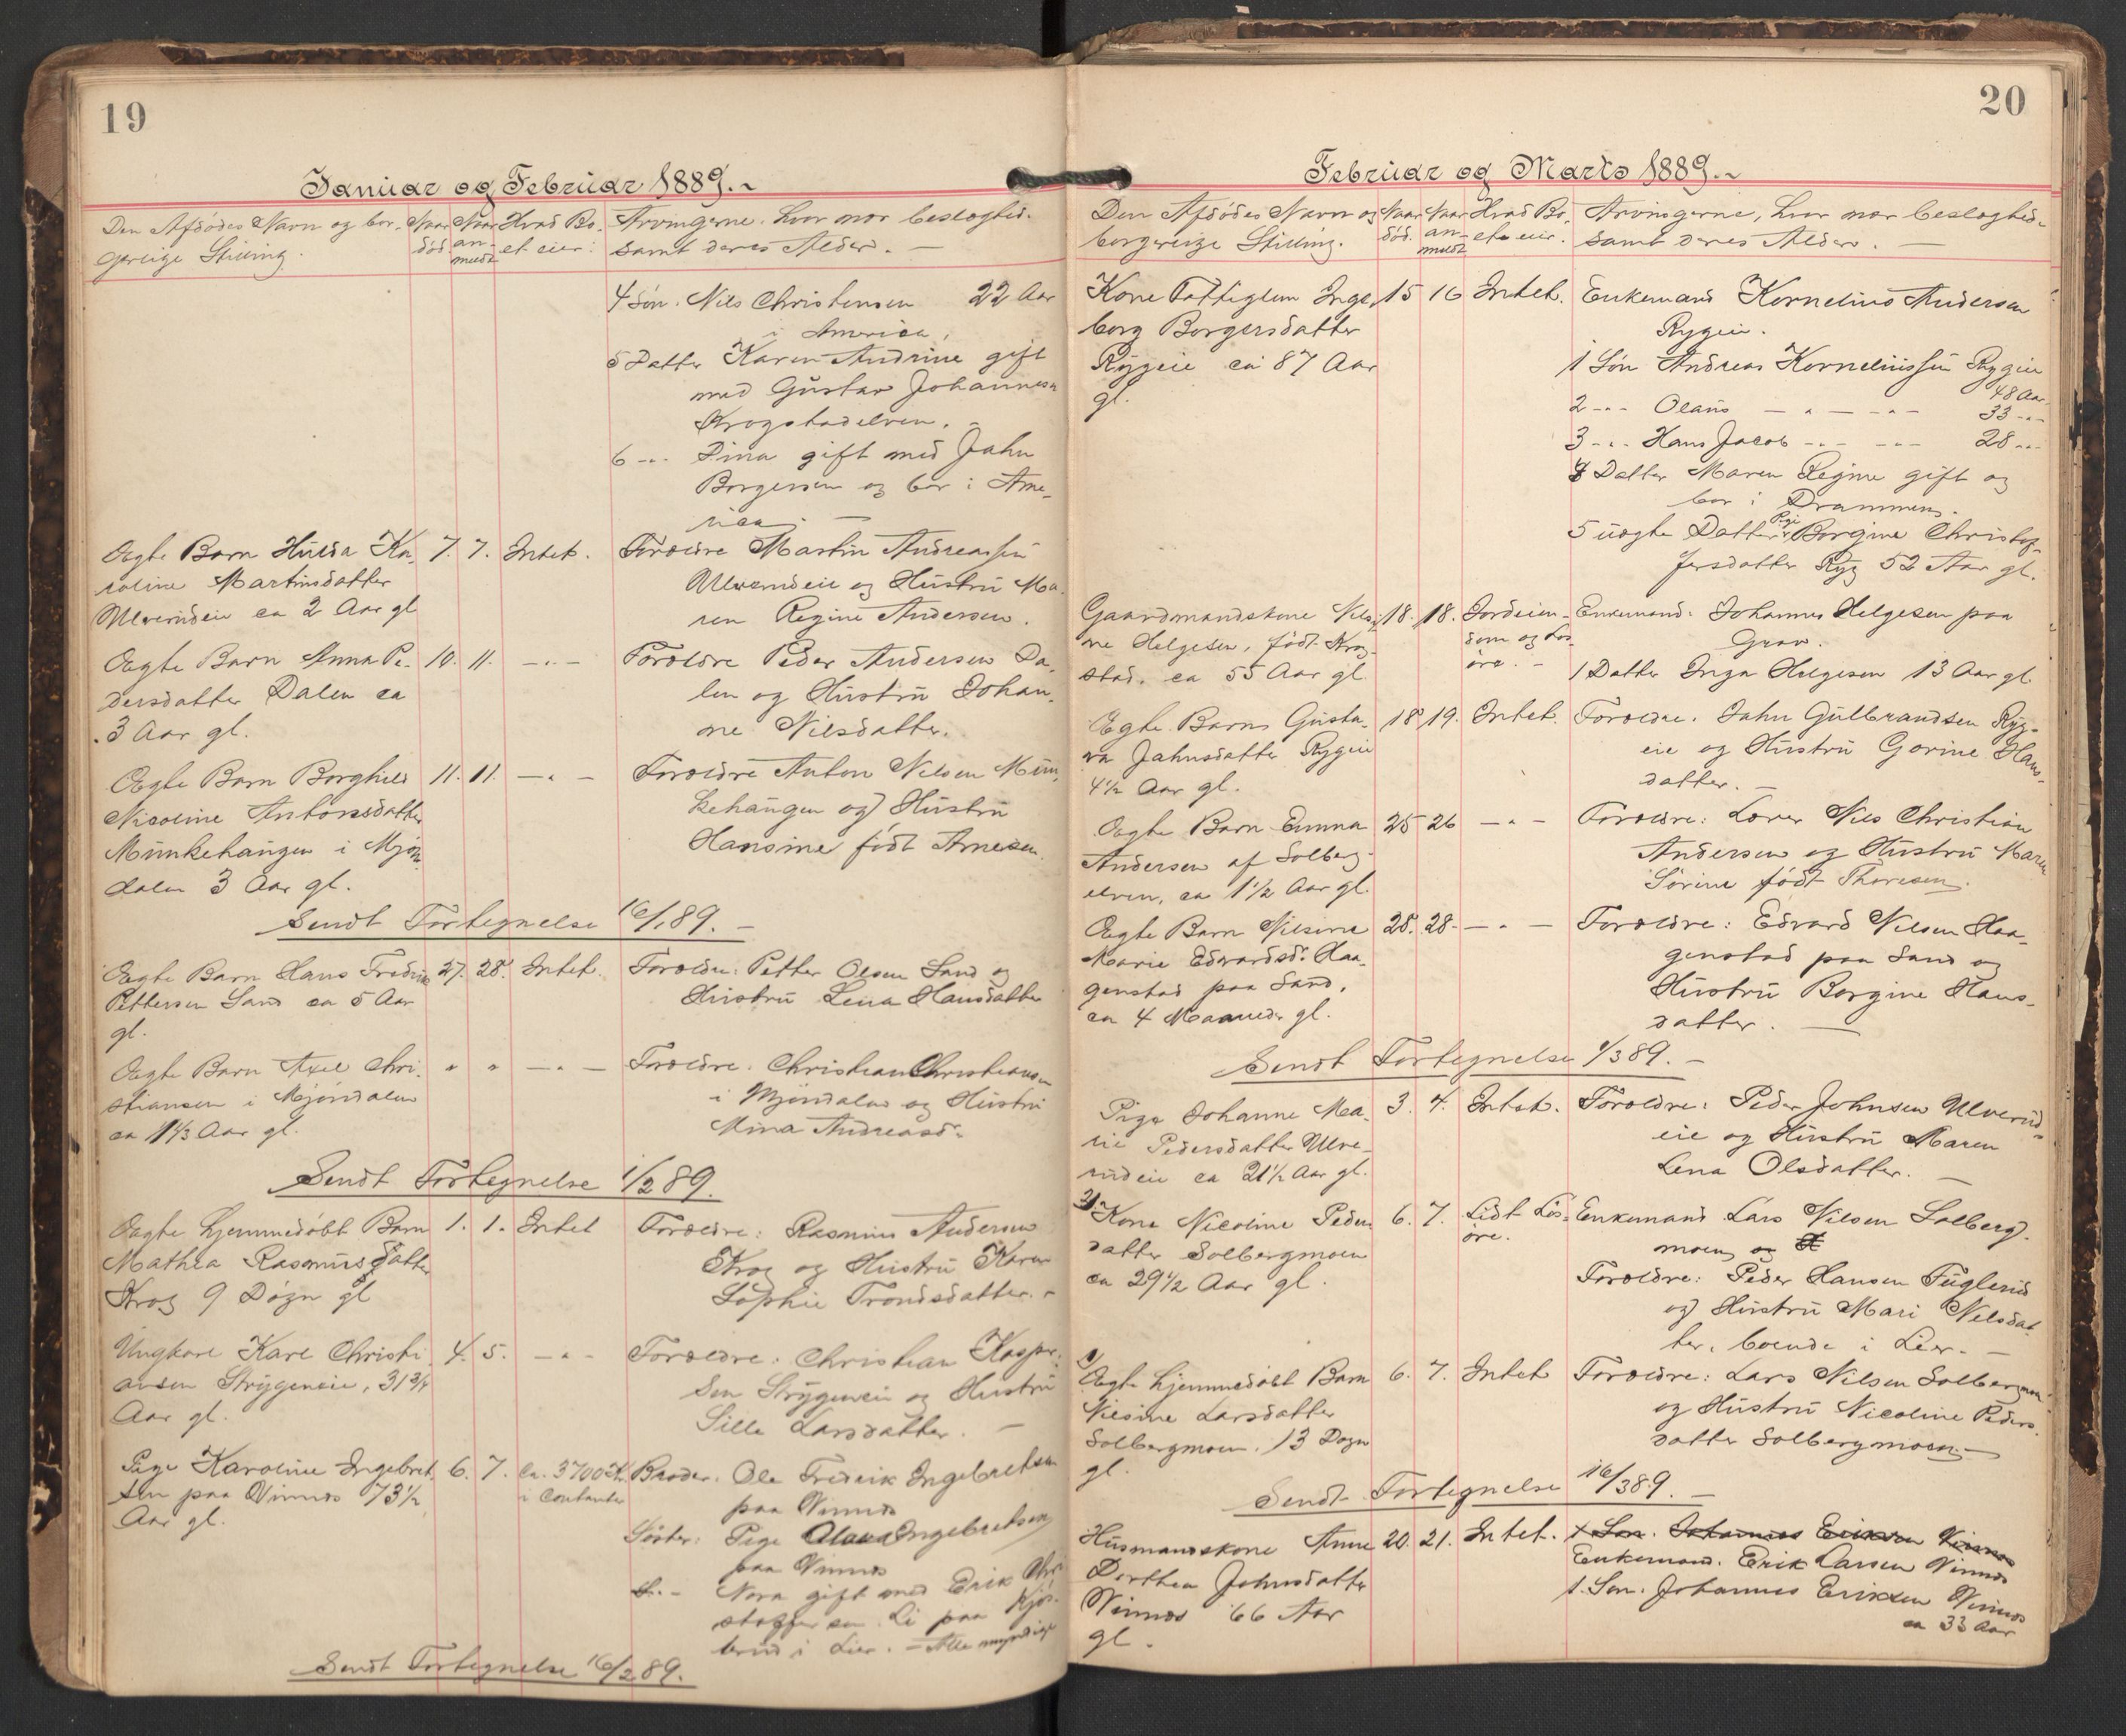 19
Januar og Februar 1889.
Den Afdødes Navn og bor-
gerlige Stilling.
Naar
død
Naar
an-
meldt
Hvad Bo-
et eier:
Arvingerne, hvor nær beslægtede
samt deres Alder.
4 Søn. Nils Christensen 22 Aar
i America,
5 Datter Karen Andrine gift
med Gustav Johannesen
Krogstadelven.
6 -"- Dina gift med Jahn
Borgersen og bor i Ame-
rica.
Ægte Barn Hulda Ka- 7. 7. Intet. Forældre Martin Andreassen
roline Martinsdatter Ulverudeie og Hustru Ma-
Ulverudeie ca 2 Aar gl ren Regine Andersen.
Ægte Barn Anna Pe- 10. 11. -"- Forældre Peder Andersen Da-
dersdatter Dalen ca len og Hustru Johan-
3 Aar gl. ne Nilsdatter.
Ægte Barn Borghild 11. 11. -"- Forældre Anton Nilsen Mun-
Nicoline Antonsdatter kehaugen og Hustru
Munkehaugen i Mjøn- Hansine født Arnesen.
dalen 3 Aar gl.
Sendt Fortegnelse 16/1 89.
Ægte Barn Hans Fredrik 27. 28. Intet. Forældre: Petter Olsen Sand og
Pettersen Sand ca 5 Aar Hustru Lena Hansdatter
gl.
Ægte Barn Axel Chri- " " -"- Forældre. Christian Christiansen
stiansen i Mjøndalen i Mjøndalen og Hustru
ca 1 1/3 Aar gl. Mina Andreasd.
Sendt Fortegnelse 1/2 89.
Ægte hjemmedøbt Barn 1. 1. Intet Forældre: Rasmus Andersen
Mathea Rasmusdatter Krog og Hustru Karen
Krog 9 Døgn gl Sophie Trondsdatter.
Ungkarl Karl Christi- 4. 5. -"- Forældre: Christian Kasper-
ansen Strygeneie, 31 3/4 sen Strygeneie og Hustru
Aar gl. Sille Larsdatter.
Pige Karoline Ingebret- 6. 7. Ca. 3700 Kr. Broder. Ole Fredrik Ingebretsen
sen paa Vinnes 73 1/2 i Contanter paa Vinnes
Aar gl. Søster: Pige Ingebretsen
paa Vinnes
Nora gift med Erik Chri-
stoffersen Li paa Kjøs-
terud i Lier. - Alle myndige
Sendt Fortegnelse 16/2 89.
20
Februar og Marts 1889.
Den Afdødes Navn og
borgerlige Stilling.
Naar
død.
Naar
an-
meldt
Hvad Bo-
et eier.
Arvingerne, hvor nær beslægtede
samt deres Alder.
Kone Fattiglem Inge- 15 16 Intet. Enkemand Kornelius Andersen
borg Borgersdatter Rygeie.
Rygeie ca 87 Aar 1 Søn Andreas Korneliussen Rygeie
gl. 48 Aar
2 -"- Olaus -"- -"- 33 -"-
3 -"- Hans Jacob -"- -"- 28 -"-
4 Datter Maren Regine gift og
bor i Drammen.
5 uægte Datter Pige Borgine Christof-
fersdatter Ryg 52 Aar gl.
Gaardmandskone Nilsi- 18. 18. Jordeien- Enkemand: Johannes Helgesen paa
ne Helgesen, født Krog- dom og Løs- Grav.
stad, ca 55 Aar gl øre. 1 Datter Inga Helgesen 13 Aar gl.
Ægte Barn Gusta- 18 19. Intet. Forældre. Jahn Gulbrandsen Ryg-
va Jahnsdatter Rygeie eie og Hustru Gorine Hans-
4 1/2 Aar gl. datter.
Ægte Barn Emma 25 26 -"- Forældre: Lærer Nils Christian
Andersen af Solberg- Andersen og Hustru Maren
elven, ca 1 1/2 Aar gl. Sørine født Thoresen.
Ægte Barn Nilsine 28. 28. -"- Forældre: Edvard Nilsen Haa-
Marie Edvardsd. Haa- genstad paa Sand og
genstad paa Sand, Hustru Borgine Hans-
ca 4 Maaneder gl. datter.
Sendt Fortegnelse 1/3 89.
Pige Johanne Ma- 3. 4. Intet. Forældre: Peder Johnsen Ulverud-
rie Pedersdatter Ulve- eie og Hustru Maren
rudeie ca 21 1/2 Aar gl. Lena Olsdatter.
2) Kone Nicoline Peders- 6. 7. Lidt Løs- Enkemand Lars Nilsen Solberg-
datter Solbergmoen øre. moen og
ca 29 1/2 Aar gl. Forældre: Peder Hansen Fuglerud
og Hustru Mari Nilsdat-
ter, boende i Lier.
1) Ægte hjemmedøbt Barn 6. 7. Intet Forældre: Lars Nilsen Solbergmoen
Nilsine Larsdatter og Hustru Nicoline Peders-
Solbergmoen. 13 Døgn datter Solbergmoen.
gl.
Sendt Fortegnelse 16/3 89.
Husmandskone Anne 20. 21. Intet. 1 Søn. Johannes Eriksen Vinnes
Dorthea Johnsdatter Enkemand. Erik Larsen Vinnes
Vinnes 66 Aar 1. Søn. Johannes Eriksen Vinnes
gl. ca 33 Aar